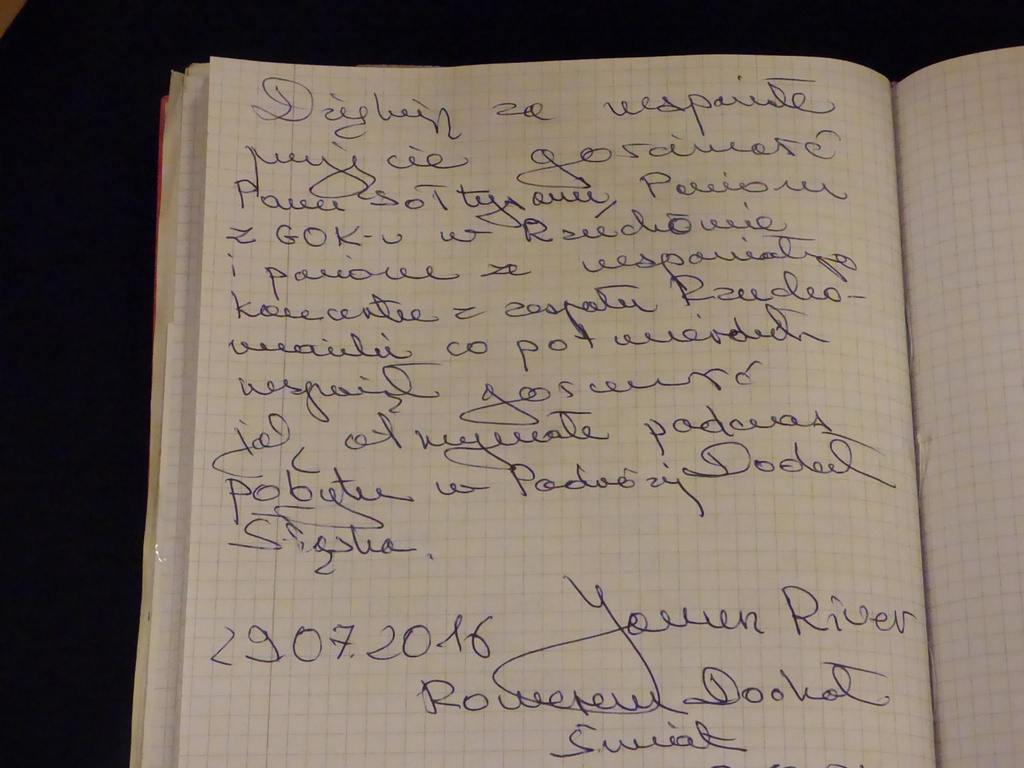 Dziękuję za wspaniałe
przyjęcie gościnność
Panu Sołtysowi, Paniom
z GOK-u w Rzuchowie
i paniom za wspaniałą
koncertu z zespołu Rzucho-
wianki co potwierdza
wspaniałą gościnność
jaką otrzymałe podczas
pobytu w Podróży Dookoł
Śląska.
29.07.2016 River
Rowerem Dookoł
Świat